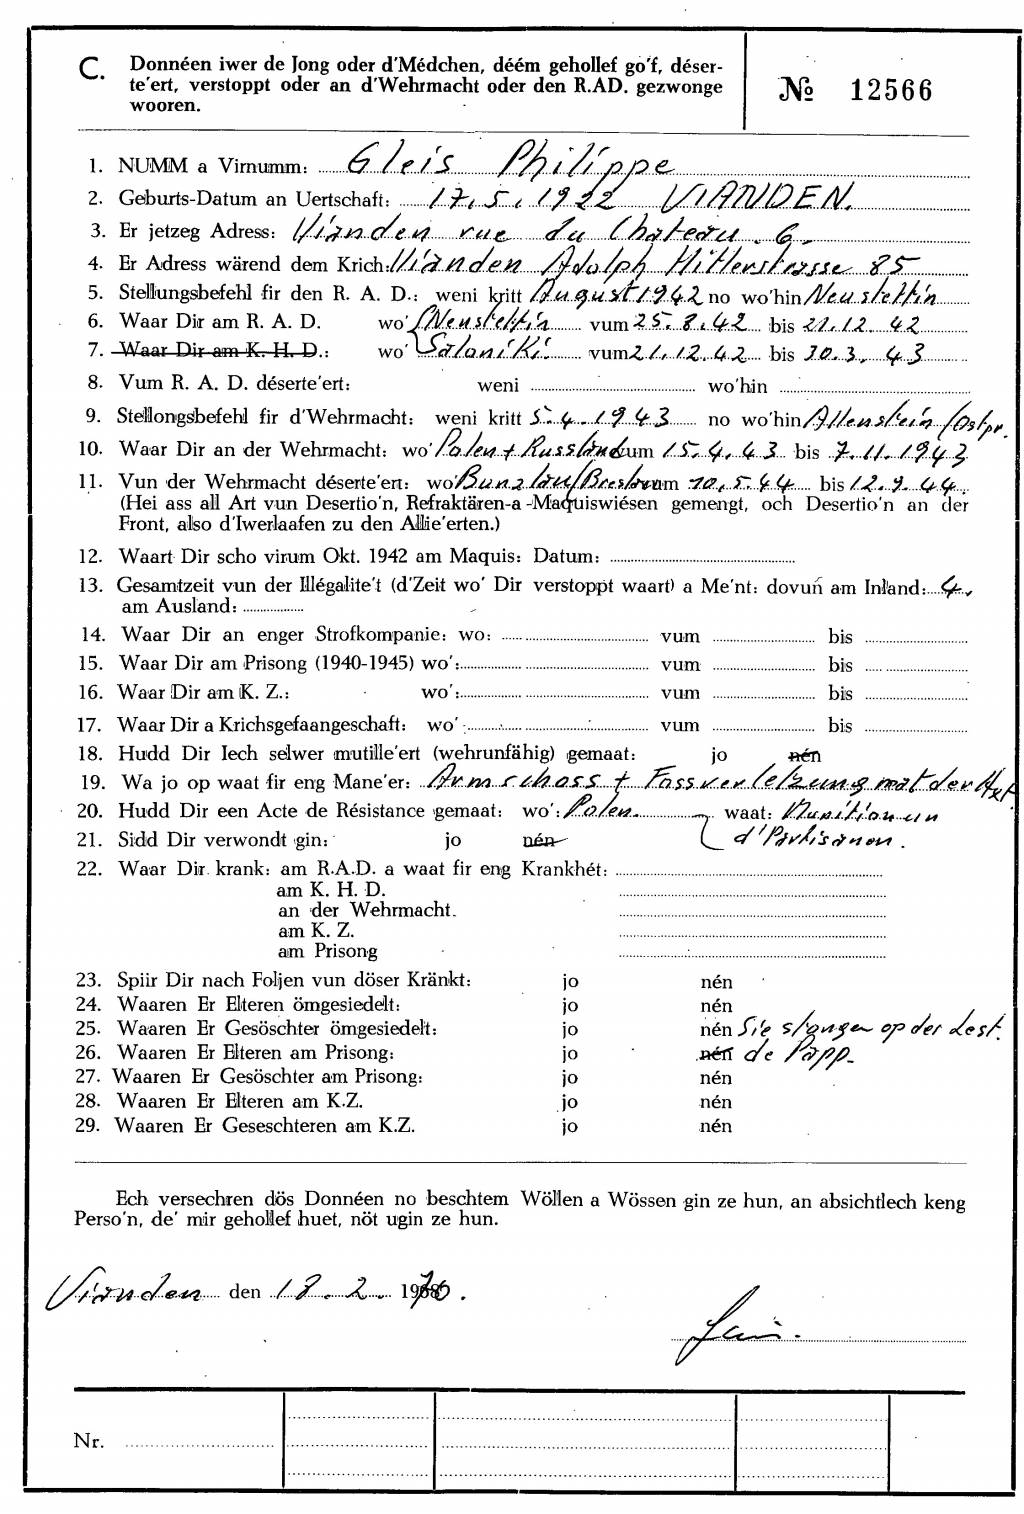 C. Donnéen iwer de Jong oder d'Médchen, déém gehollef go'f, déser-
te'ert, verstoppt oder an d'Wehrmacht oder den R.AD. gezwonge
wooren.
№ 12566
1. NUMM a Virnumm: Gleis Philippe
2. Geburts-Datum an Uertschaft: 17.5.1922 VIANDEN.
3. Er jetzeg Adress: Vianden rue du Chateau. 6.
4. Er Adress wärend dem Krich: Vianden Adolph Hitlerstrasse 85
5. Stellungsbefehl fir den R. A. D.: weni kritt August 1942 no wo'hin Neustettin
6. Waar Dir am R. A. D. wo' Neustettin vum 25.8.42 bis 21.12.42
7. Waar Dir am K. H. D.: wo' Saloniki. vum 21.12.42 bis 30.3.43
8. Vum R. A. D. déserte'ert: weni wo'hin
9. Stellongsbefehl fir d'Wehrmacht: weni kritt 5.4.1943 no wo'hin Allenstein/Ostpr.
10. Waar Dir an der Wehrmacht: wo' Polen + Russland vum 15.4.43 bis 7.11.1943
11. Vun der Wehrmacht déserte'ert: wo' Bunzlau/Breslau vum 10.5.44 bis 12.9.44.
(Hei ass all Art vun Desertio'n, Refraktären-a-Maquiswiésen gemengt, och Desertio'n an der
Front, also d'Iwerlaafen zu den Allie'erten.)
12. Waart Dir scho virum Okt. 1942 am Maquis: Datum:
13. Gesamtzeit vun der Illégalite't (d'Zeit wo' Dir verstoppt waart) a Me'nt: dovun am Inland: 4.
am Ausland:
14. Waar Dir an enger Strofkompanie: wo: vum bis
15. Waar Dir am Prisong (1940-1945) wo': vum bis
16. Waar Dir am K. Z.: wo': vum bis
17. Waar Dir a Krichsgefaangeschaft: wo' vum bis
18. Hudd Dir Iech selwer mutille'ert (wehrunfähig) gemaat: jo nén
19. Wa jo op waat fir eng Mane'er: Armschoss + Fossverletzung mat der Axt.
20. Hudd Dir een Acte de Résistance gemaat: wo': Polen. waat: Munition un
d'Partisanen.
21. Sidd Dir verwondt gin: jo nén
22. Waar Dir krank: am R.A.D. a waat fir eng Krankhét:
am K. H. D.
an der Wehrmacht.
am K. Z.
am Prisong
23. Spiir Dir nach Foljen vun döser Kränkt: jo nén
24. Waaren Er Elteren ömgesiedelt: jo nén
25. Waaren Er Gesöschter ömgesiedelt: jo nén Sie stongen op der Lest.
26. Waaren Er Elteren am Prisong: jo nén de Papp.
27. Waaren Er Gesöschter am Prisong: jo nén
28. Waaren Er Elteren am K.Z. jo nén
29. Waaren Er Geseschteren am K.Z. jo nén
Ech versechren dös Donnéen no beschtem Wöllen a Wössen gin ze hun, an absichtlech keng
Perso'n, de' mir gehollef huet, nöt ugin ze hun.
Vianden den 18.2. 1970.
Nr.